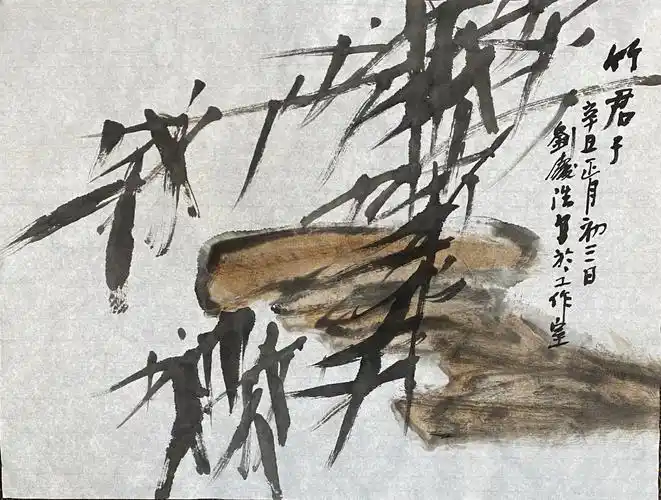 竹君子
辛丑正月初三日
劉慶浩寫於工作室